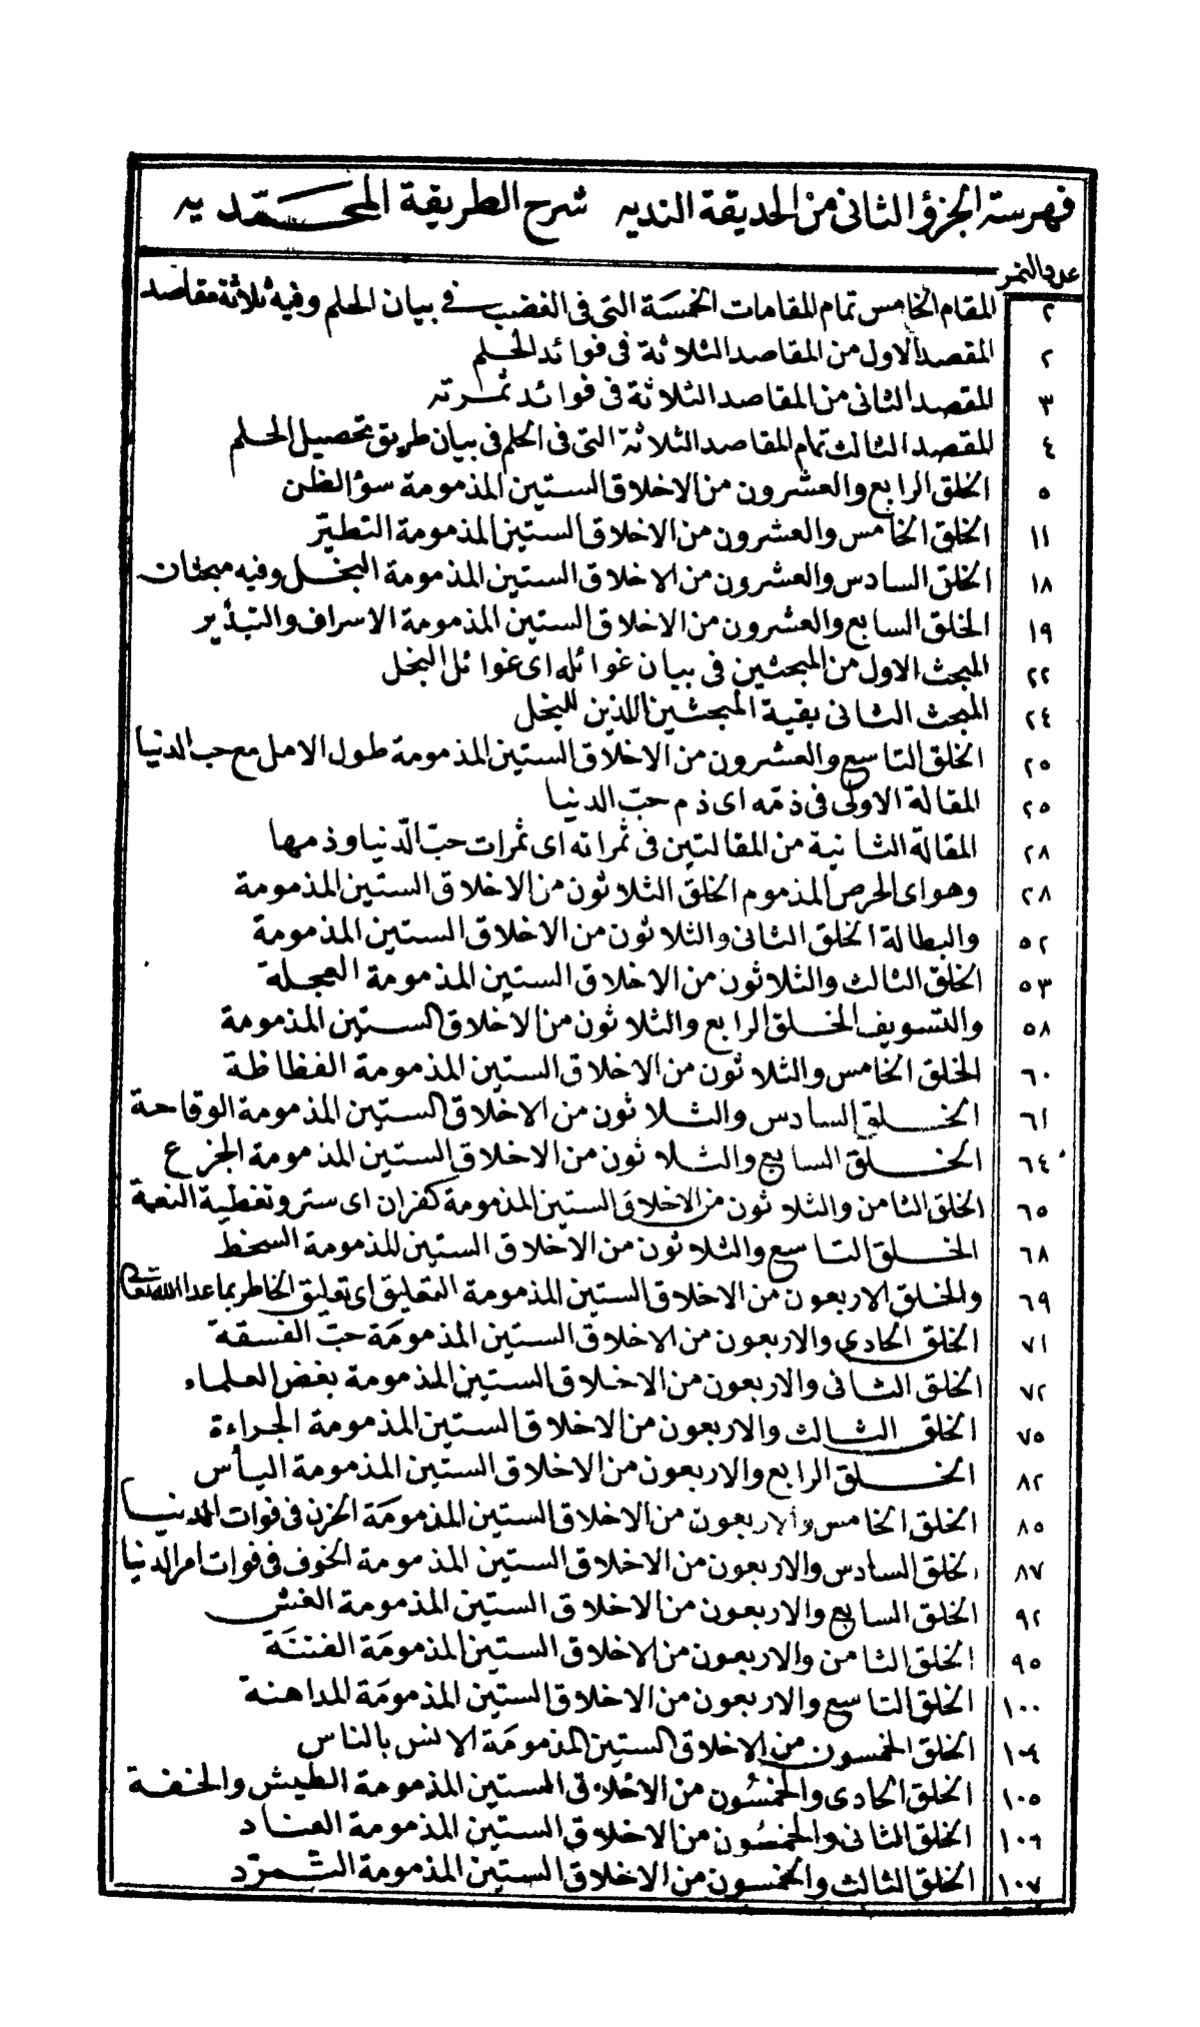 فهرسته الجزؤ الثانى من الحديقة النديه شرح الطريقة المحمديه
عدد النمر
٢ المقام الخامس تمام المقامات الخمسة التى فى الغضب فى بيان الحلم وفيه ثلاثة مقاصد
٢ المقصد الاول من المقاصد الثلاثة فى فوائد الحلم
٣ المقصد الثانى من المقاصد الثلاثة فى فوائد ثمرته
٤ المقصد الثالث تمام المقاصد الثلاثة التى فى الحلم فى بيان طريق تحصيل الحلم
٥ الخلق الرابع والعشرون من الاخلاق الستين المذمومة سؤ الظن
١١ الخلق الخامس والعشرون من الاخلاق الستين المذمومة التطيّر
١٨ الخلق السادس والعشرون من الاخلاق الستين المذمومة البخل وفيه مبحثان
١٩ الخلق السابع والعشرون من الاخلاق الستين المذمومة الاسراف والتبذير
٢٢ المبحث الاول من المبحثين فى بيان غوائله اى غوائل البخل
٢٤ المبحث الثانى بقية المبحثين اللذين للبخل
٢٥ الخلق التاسع والعشرون من الاخلاق الستين المذمومة طول الامل مع حب الدنيا
٢٥ المقالة الاولى فى ذمّه اى ذم حبّ الدنيا
٢٨ المقالة الثانية من المقالتين فى ثمراته اى ثمرات حبّ الدّنيا وذمها
٢٨ وهو اى الحرص المذموم الخلق الثلاثون من الاخلاق الستين المذمومة
٥٢ والبطالة الخلق الثانى والثلاثون من الاخلاق الستين المذمومة
٥٣ الخلق الثالث والثلاثون من الاخلاق الستين المذمومة العجلة
٥٨ والتسويف الخلق الرابع والثلاثون من الاخلاق الستين المذمومة
٦٠ الخلق الخامس والثلاثون من الاخلاق الستين المذمومة الفظاظة
٦١ الخلق السادس والثلاثون من الاخلاق الستين المذمومة الوقاحة
٦٤ الخلق السابع والثلاثون من الاخلاق الستين المذمومة الجزع
٦٥ الخلق الثامن والثلاثون من الاخلاق الستين المذمومة كفران اى ستر وتغطية النعمة
٦٨ الخلق التاسع والثلاثون من الاخلاق الستين المذمومة السخط
٦٩ والخلق الاربعون من الاخلاق الستين المذمومة التعليق اى تعليق الخاطر بما عدا الله تعالى
٧١ الخلق الحادى والاربعون من الاخلاق الستين المذمومَة حبّ الفسقة
٧٢ الخلق الثانى والاربعون من الاخلاق الستين المذمومة بغض العلماء
٧٥ الخلق الثالث والاربعون من الاخلاق الستين المذمومة الجراءة
٨٢ الخلق الرابع والاربعون من الاخلاق الستين المذمومة اليأس
٨٥ الخلق الخامس والاربعون من الاخلاق الستين المذمومَة الحزن فى فوات الدنيا
٨٧ الخلق السادس والاربعون من الاخلاق الستين المذمومة الخوف فى فوات امر الدنيا
٩٢ الخلق السابع والاربعون من الاخلاق الستين المذمومة الغش
٩٥ الخلق الثامن والاربعون من الاخلاق الستين المذمومَة الفتنَة
١٠٠ الخلق التاسع والاربعون من الاخلاق الستين المذمومَة المداهنة
١٠٤ الخلق الخمسون من الاخلاق الستين المذمومَة الانس بالناس
١٠٥ الخلق الحادى والخمسُون من الاخلاق الستين المذمومة الطيش والخفة
١٠٦ الخلق الثانى والخمسُون من الاخلاق الستين المذمومة العناد
١٠٧ الخلق الثالث والخمسون من الاخلاق الستين المذمومة التمرّد